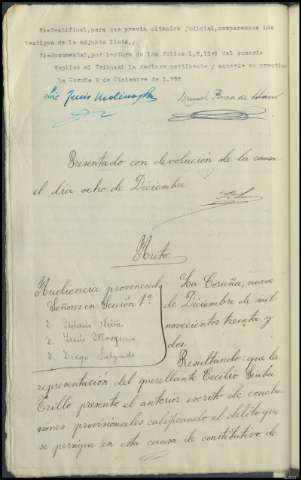 2)=Testifical, para que previa citación judicial, comparezcan los
testigos de la adjunta lista,/
3)=Documental, por lectura de los folios 1, 5, del sumario
Suplico al Tribunal la declare pertinente y acuerde su practica
La Coruña 2 de Diciembre de 1.932
Lic Jesús
Manuel
Presentado con devolución de la causa
el dia ocho de Diciembre
Auto
Audiencia provincial
Señores en Sección 1ª
D.
D. Jesús
D. Diego Salgado
La Coruña, nueve
de Diciembre de mil
novecientos treinta y
dos
Resultando: que la
representación del querellante Cecilio
Trillo presentó el anterior escrito de conclu-
siones provisionales calificando el delito que
se persigue en esta causa de constitutivo de